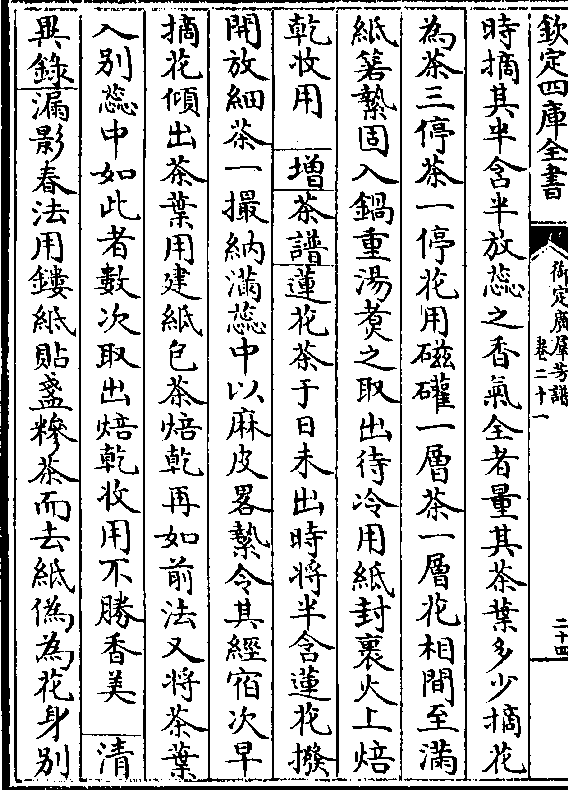 欽定四庫全書
御定廣羣芳譜
卷二十一
二十四
時摘其半含半放蕊之香氣全者量其茶葉多少摘花
為茶三停茶一停花用磁礶一層茶一層花相間至滿
紙箬縶固入鍋重湯煑之取出待冷用紙封裹火上焙
乾收用　增茶譜蓮花茶于日未出時将半含蓮花撥
開放細茶一撮納滿蕊中以麻皮畧縶令其經宿次早
摘花傾出茶葉用建紙包茶焙乾再如前法又将茶葉
入别蕊中如此者數次取出焙乾收用不勝香美　清
異錄漏影春法用鏤紙貼盞糝茶而去紙僞為花身别